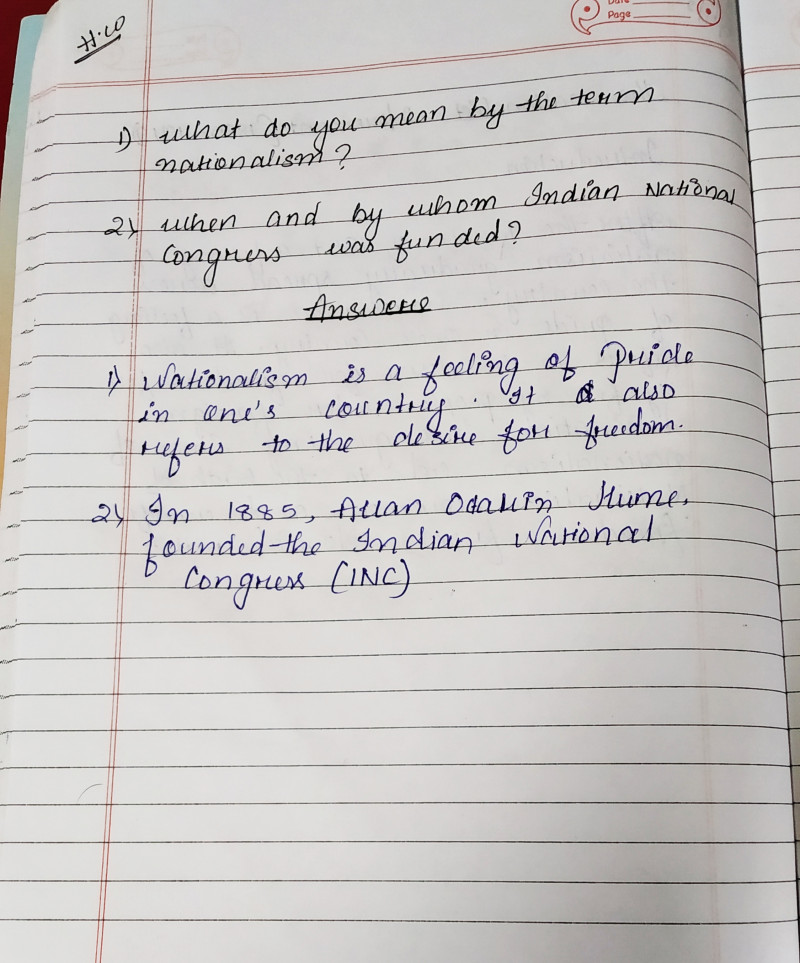 H.W
Date
Page
1) what do you mean by the term
nationalism?
2) when and by whom Indian National
Congress was funded?
Answers
1) Nationalism is a feeling of Pride
in one's country. It also
refers to the desire for freedom.
2) In 1885, Allan Odalin Hume,
founded the Indian National
Congress (INC)